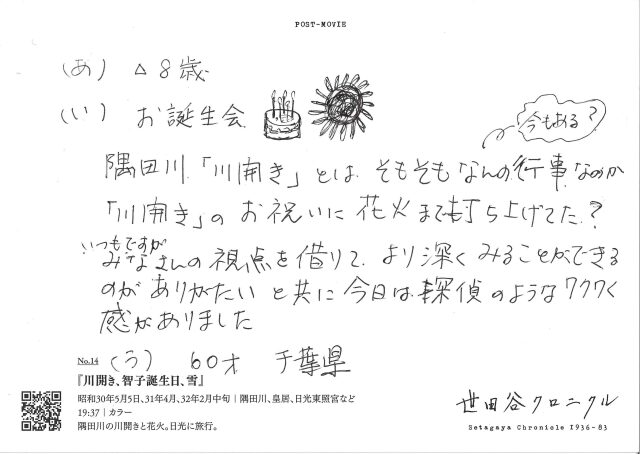 POST-MOVIE
(あ) △8歳
(い) お誕生会
今もある?
隅田川「川開き」とは、そもそもなんの行事なのか
「川開き」のお祝いに花火まで打ち上げてた?
いつもですが
みなさんの視点を借りて、より深くみることができる
のがありがたいと共に今日は探偵のようなワクワク
感がありました
No.14
(う) 60才 千葉県
『川開き、智子誕生日、雪』
昭和30年5月5日、31年4月、32年2月中旬|隅田川、皇居、日光東照宮など
19:37|カラー
隅田川の川開きと花火。日光に旅行。
世田谷クロニクル
Setagaya Chronicle 1936-83